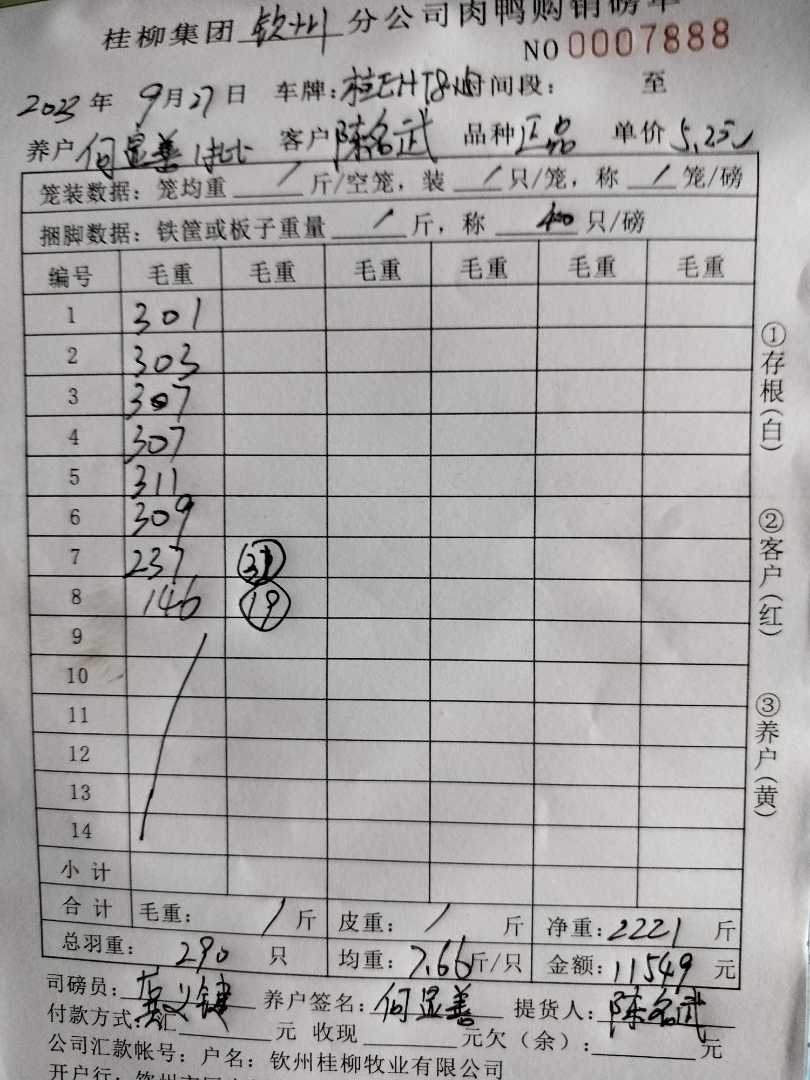 桂柳集团 钦州 分公司肉鸭购销磅单
NO 0007888
2023 年 9 月 27 日 车牌: 时间段: 至
养户 何显善 客户 陈名武 品种 正品 单价 5.2元
笼装数据: 笼均重 / 斤/空笼, 装 / 只/笼, 称 / 笼/磅
捆脚数据: 铁筐或板子重量 / 斤, 称 40 只/磅
编号 毛重 毛重 毛重 毛重 毛重 毛重
1 301
2 303
3 307
4 307
5 311
6 309
7 237 31
8 146 19
9
10
11
12
13
14
小计
合计 毛重: / 斤 皮重: / 斤 净重: 2221 斤
总羽重: 290 只 均重: 7.66 斤/只 金额: 11549 元
司磅员: 养户签名: 何显善 提货人: 陈名武
付款方式: 汇 元 收现 元欠(余): 元
公司汇款帐号: 户名: 钦州桂柳牧业有限公司
开户行: 钦州市
①存根(白)
②客户(红)
③养户(黄)